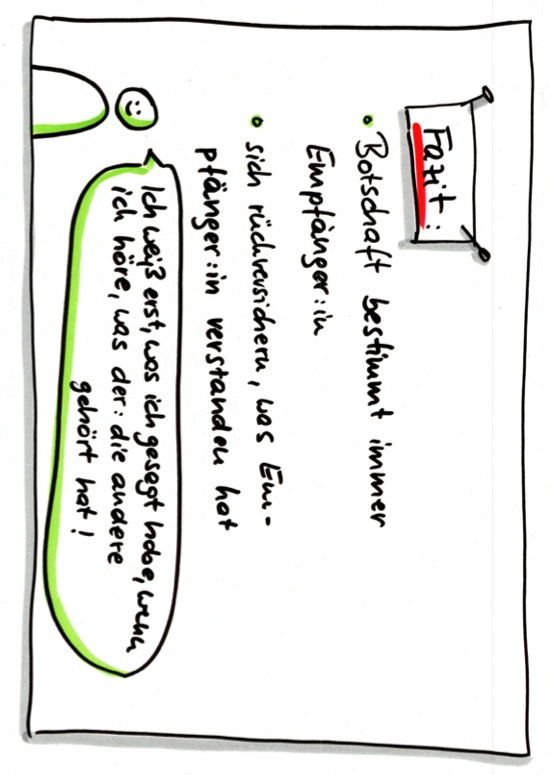 Fazit:
Botschaft bestimmt immer
Empfänger:in
sich rückversichern, was Em-
pfänger:in verstanden hat
Ich weiß erst, was ich gesagt habe, wenn
ich höre, was der:die andere
gehört hat!